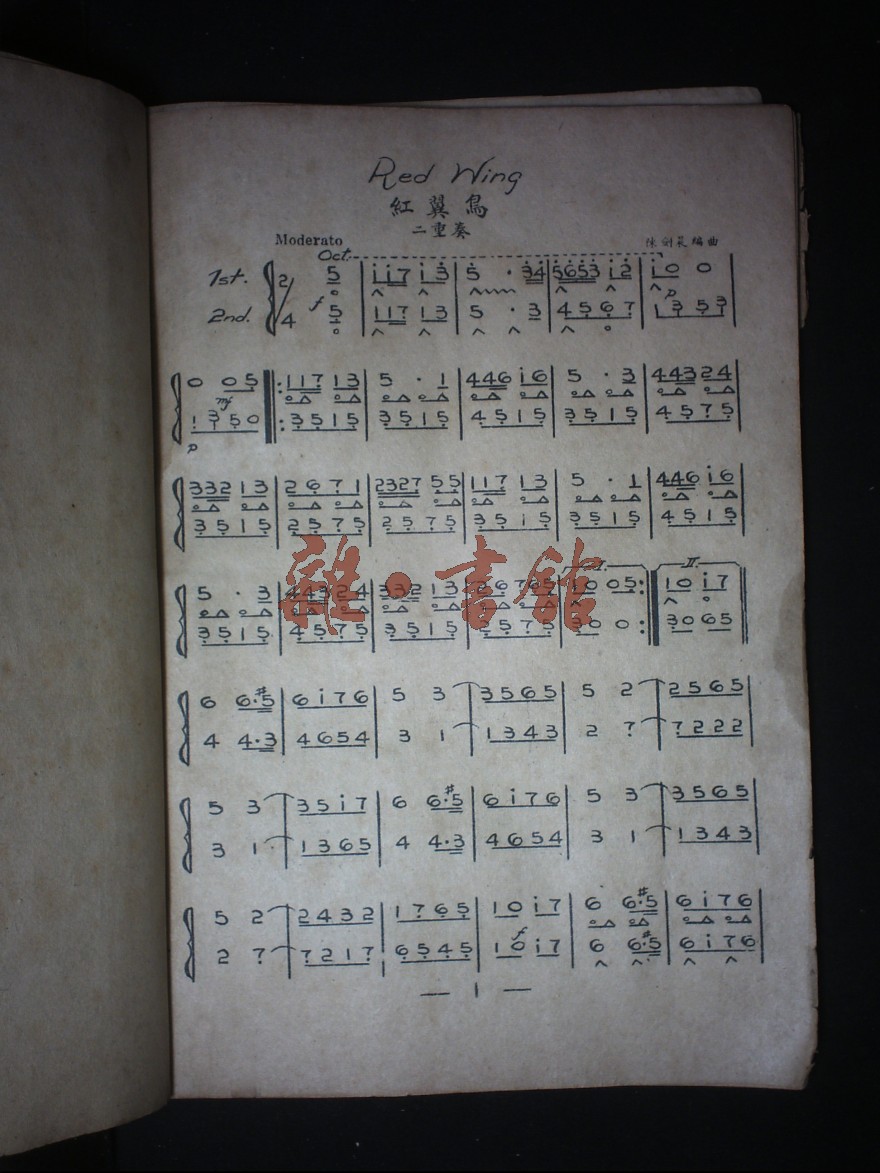 Red Wing
紅翼鳥
二重奏
Moderato
陳劍晨編曲
Oct.
1st. 2/4 5 | i i 7 i 3 | 5 · 3 4 | 5 6 5 3 i 2 | i 0 0 |
2nd. f 5 | 1 1 7 1 3 | 5 · 3 | 4 5 6 7 | 1 3 5 3 |
p
0 0 5 |: 1 1 7 1 3 | 5 · 1 | 4 4 6 i 6 | 5 · 3 | 4 4 3 2 4 |
mf
1 3 5 0 |: 3 5 1 5 | 3 5 1 5 | 4 5 1 5 | 3 5 1 5 | 4 5 7 5 |
p
3 3 2 1 3 | 2 6 7 1 | 2 3 2 7 5 5 | 1 1 7 1 3 | 5 · 1 | 4 4 6 i 6 |
3 5 1 5 | 2 5 7 5 | 2 5 7 5 | 3 5 1 5 | 3 5 1 5 | 4 5 1 5 |
I. II.
5 · 3 | 4 4 3 2 4 | 3 3 2 1 3 | 2 6 7 6 5 | 1 0 0 5 :| 1 0 i 7 ||
3 5 1 5 | 4 5 7 5 | 3 5 1 5 | 2 5 7 5 | 3 0 0 :| 3 0 6 5 ||
6 6·#5 | 6 i 7 6 | 5 3 | 3 5 6 5 | 5 2 | 2 5 6 5 |
4 4·3 | 4 6 5 4 | 3 1 | 1 3 4 3 | 2 7 | 7 2 2 2 |
5 3 | 3 5 i 7 | 6 6·#5 | 6 i 7 6 | 5 3 | 3 5 6 5 |
3 1 · | 1 3 6 5 | 4 4·3 | 4 6 5 4 | 3 1 | 1 3 4 3 |
5 2 | 2 4 3 2 | 1 7 6 5 | 1 0 i 7 | 6 6·#5 | 6 i 7 6 |
f
2 7 | 7 2 1 7 | 6 5 4 5 | 1 0 i 7 | 6 6·#5 | 6 i 7 6 |
— 1 —
雜·書館